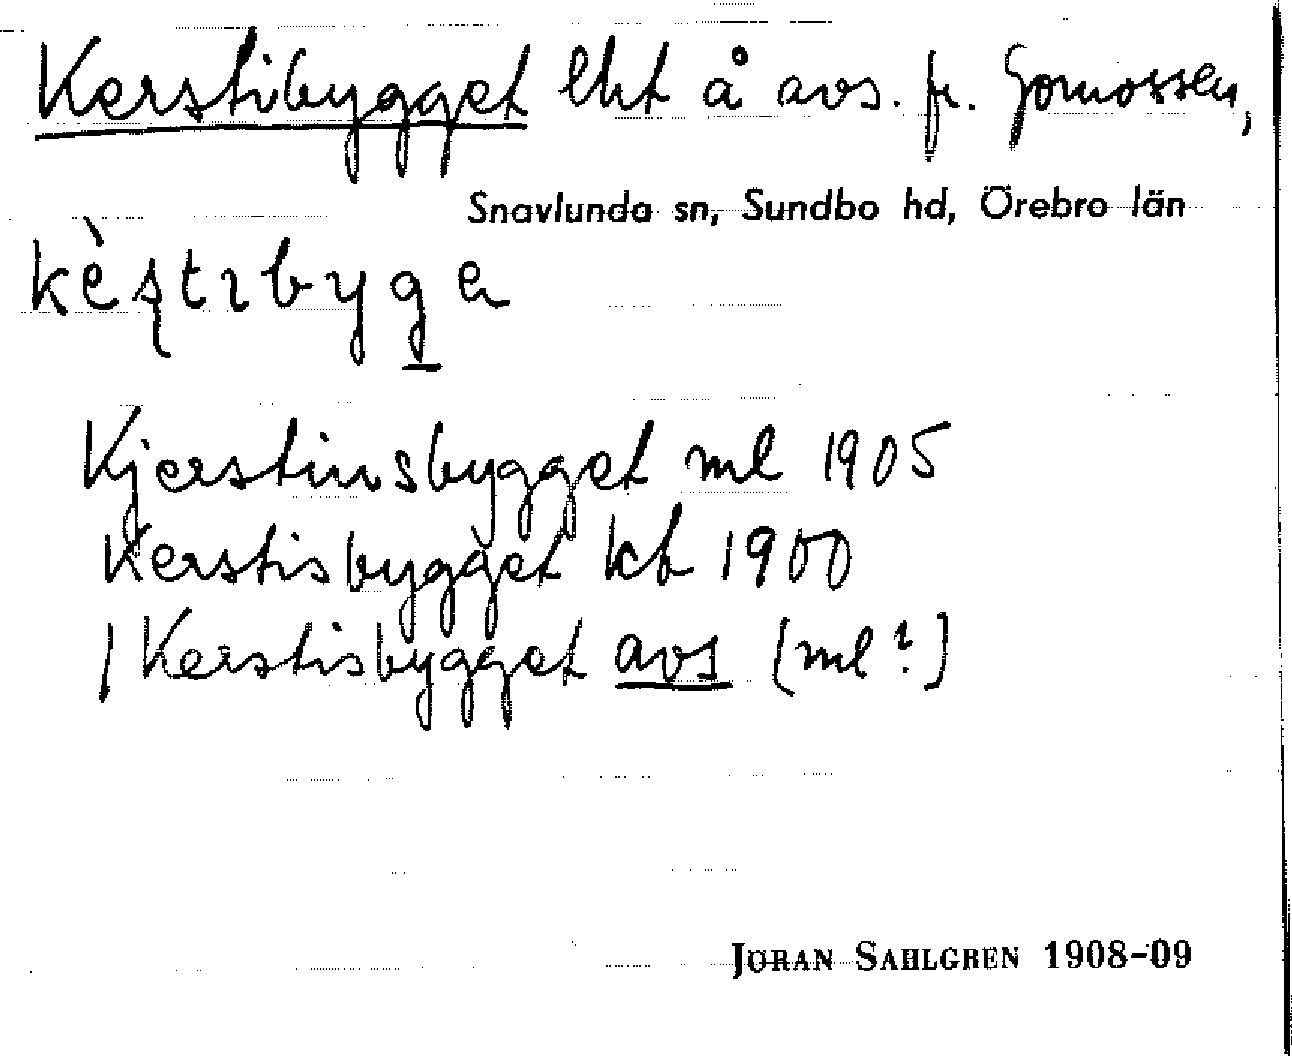 Kerstibygget lht å avs. fr. Gomossen,
Snavlunda sn, Sundbo hd, Örebro län
kèʂtɩbyge
Kjerstinsbygget ml 1905
Kerstisbygget kb 1900
/ Kerstisbygget avs [ml?]
JÖRAN SAHLGREN 1908-09